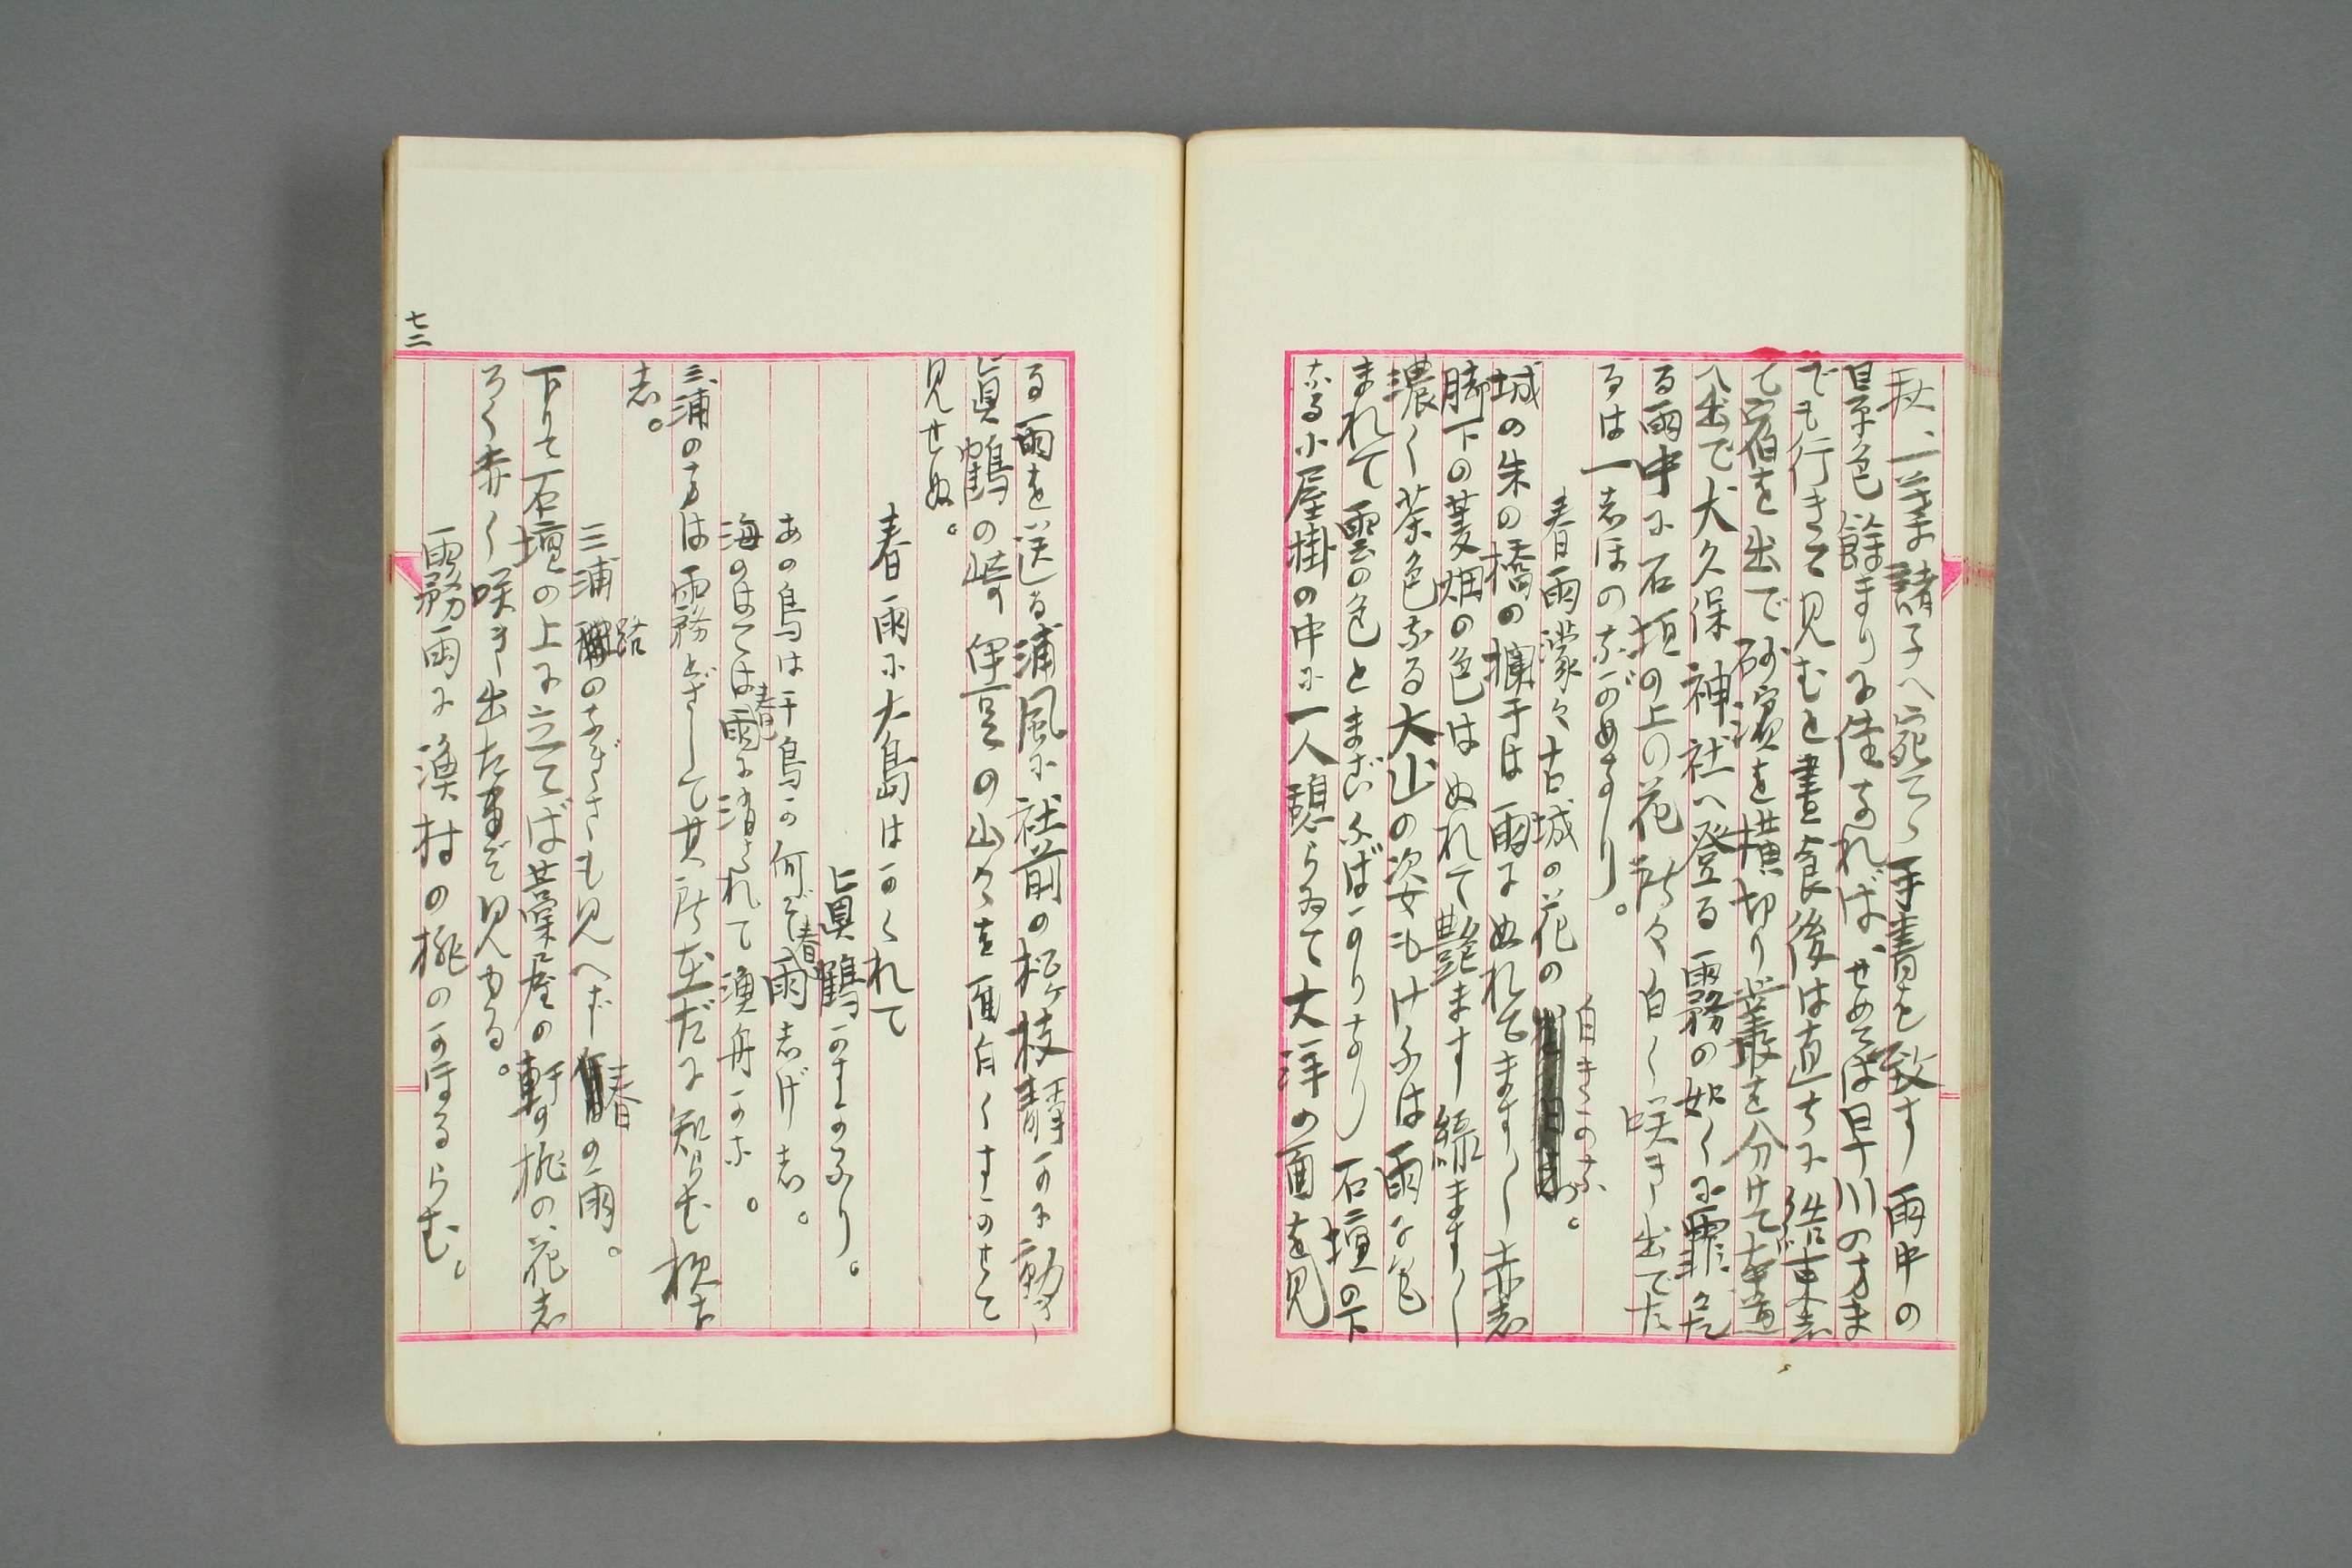 秋、一葉諸子へ宛てゝ手書を致す 雨中の
景色餘まりに佳なれば、せめては早川の方ま
でも行きて見むと晝食後は直ちに結束志
て宿を出で砂濱を横切り叢を分けて
へ出で大久保神社へ登る 霧の如くに霏々た
る雨中に石垣の上の花所々白く咲き出でた
るは一志ほのながめなり。
春雨濛々古城の花の白きかな。
城の朱の橋の欄干は雨にぬれてますく赤志
脚下の麦畑の色はぬれて艶ます緑ますく
濃く茶色なる大山の姿もけふは雨に包
まれて雲の色とまがふばかりなり 石壇の下
なる小屋掛の中に一人憩らゐて大洋の面を見
る 雨を送る浦風に社前の松ヶ枝靜かに動き
眞鶴の崎 伊豆の山々立雁白くすかせて
見せぬ。
春雨に大島はかくれて
眞鶴かすかなり。
あの鳥は千鳥か何ぞ春雨志げ志。
海のはては春雨に消されて漁舟かな。
三浦の方は霧とざして其所在だに知らむ 樣な
志。
三浦路のなぎさも見へず春の雨。
下りて石壇の上に立てば藁屋の軒の桃の花志
ろく赤く咲き出たるぞ見ゆる。
霧雨に漁村の桃のかほるらむ。
七二